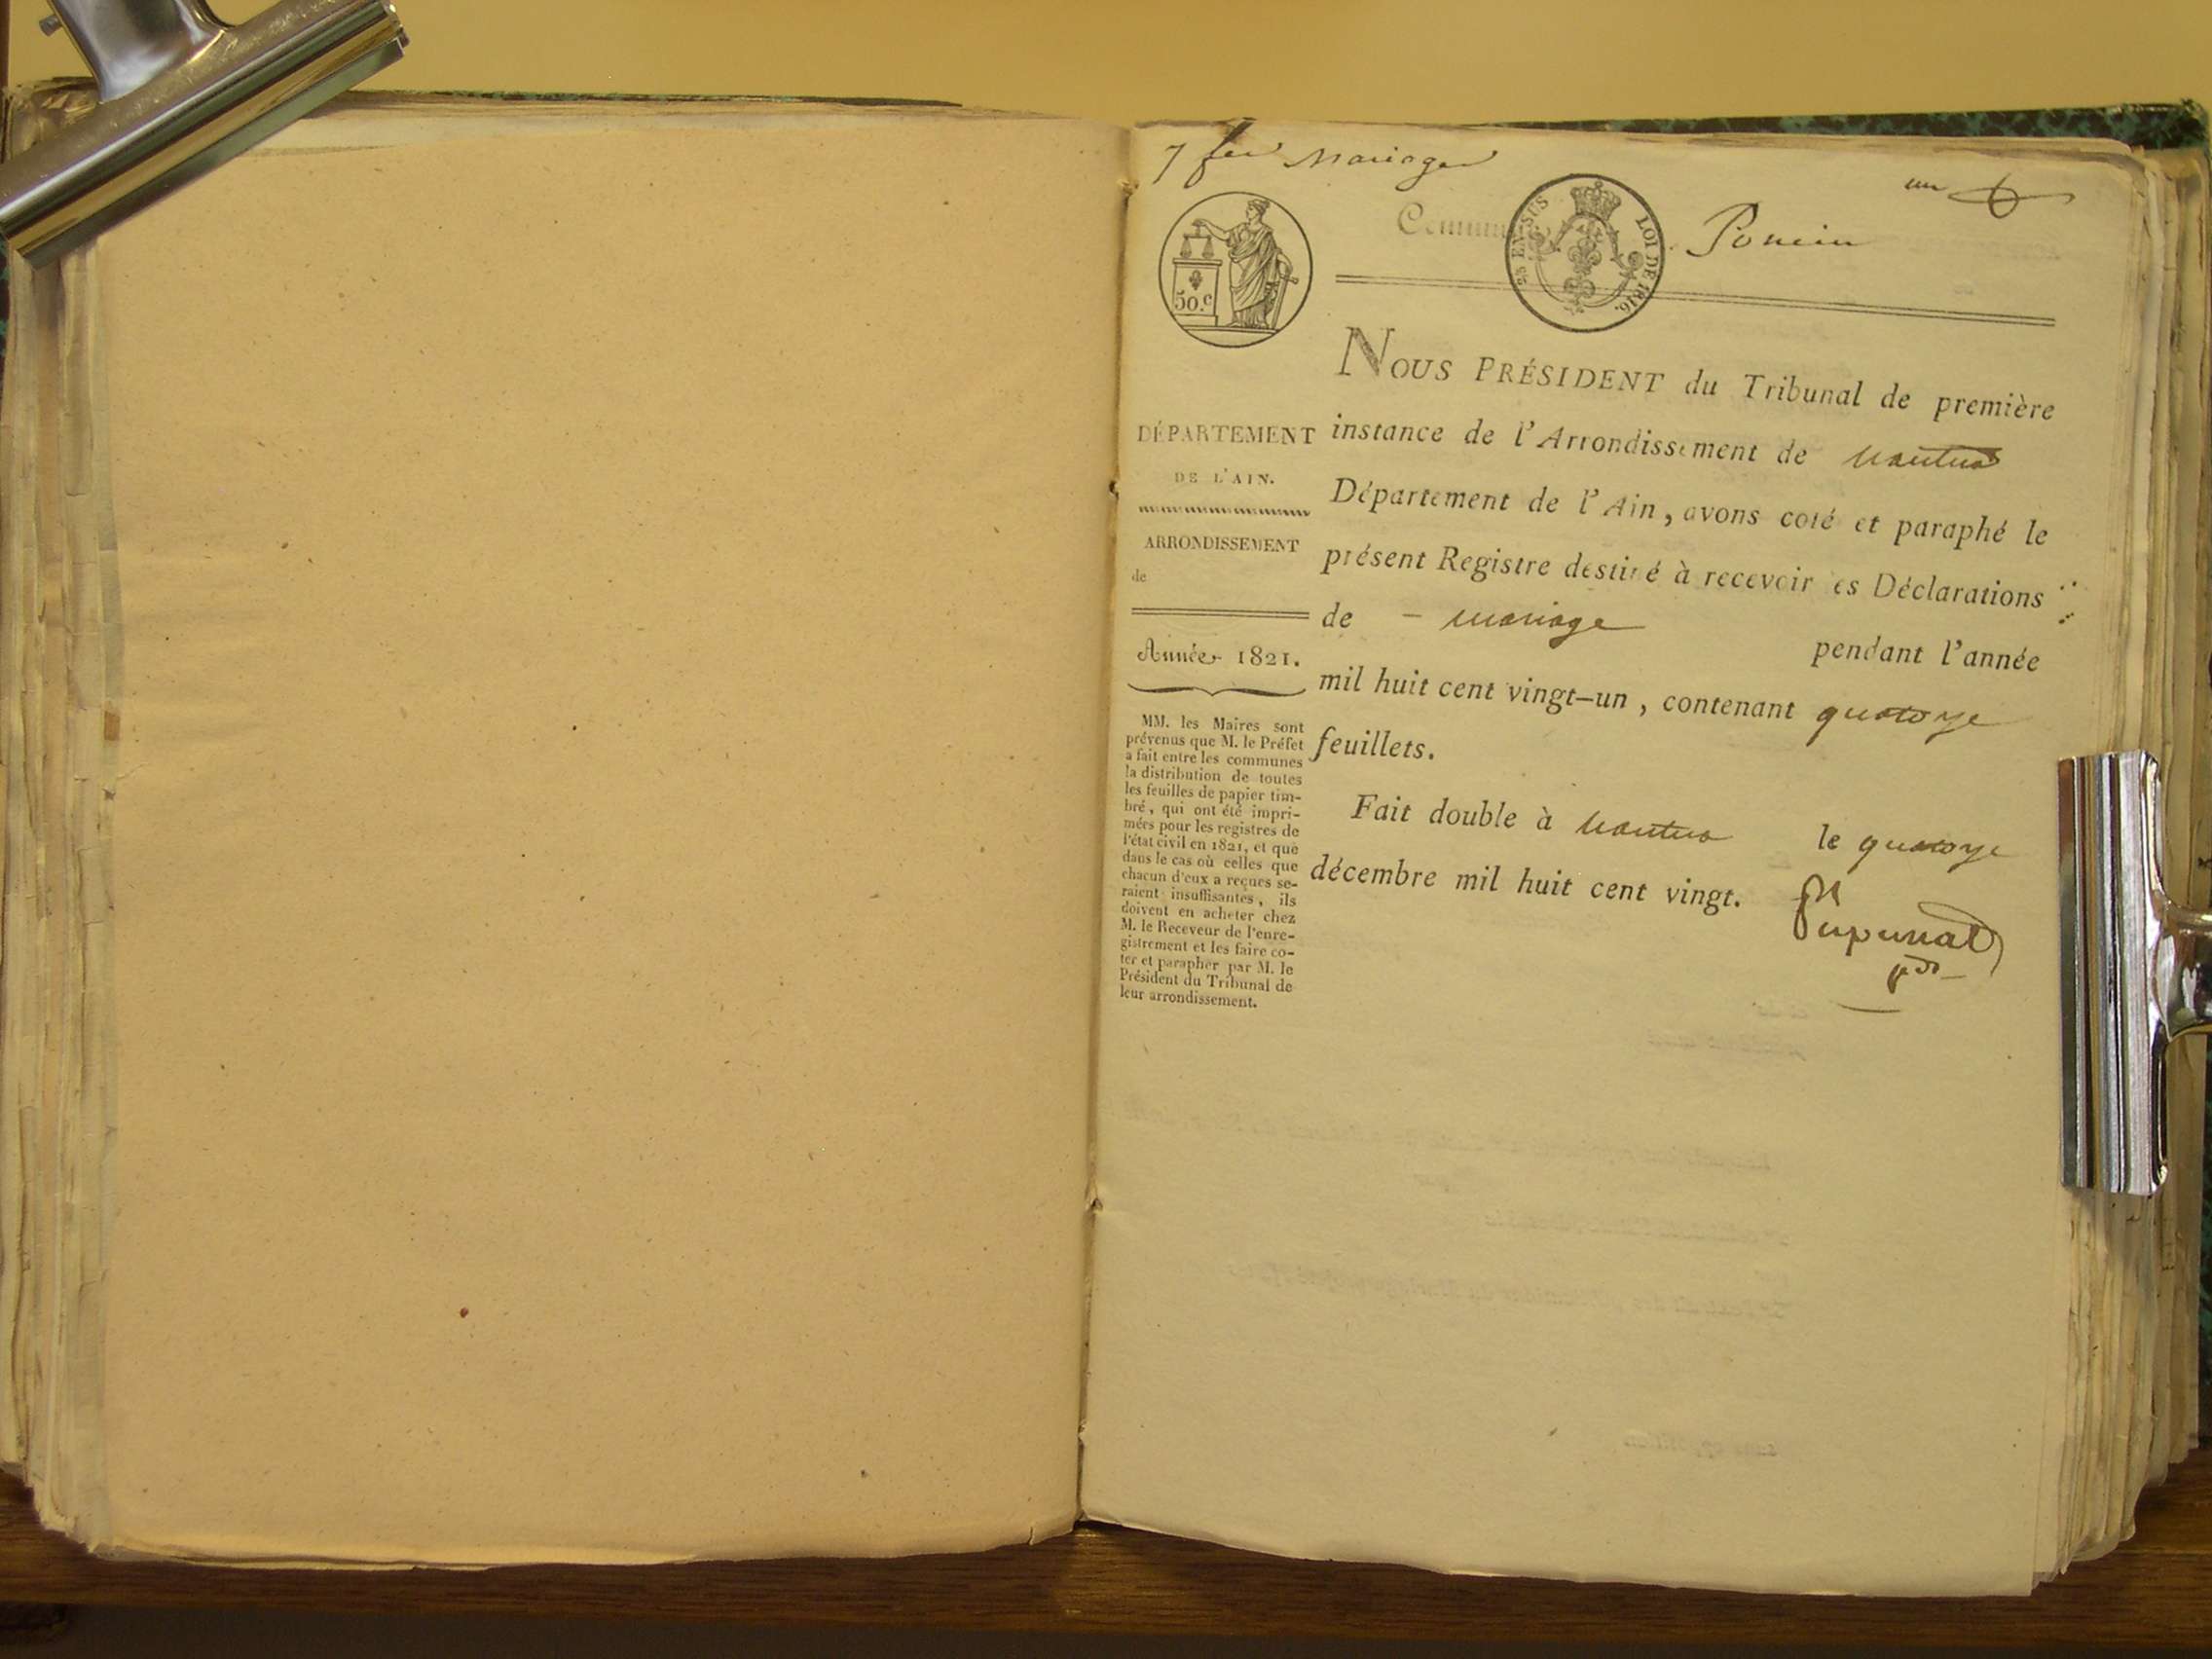 7 fer Mariages
un
Commune
25 EN SUS
LOI DE 1816.
Poncin
50.c
NOUS PRÉSIDENT du Tribunal de première
instance de l'Arrondissement de nantua
Département de l'Ain, avons coté et paraphé le
présent Registre destiné à recevoir es Déclarations
de - mariage pendant l'année
mil huit cent vingt-un, contenant quatorze
feuillets.
Fait double à nantua le quatorze
décembre mil huit cent vingt.
Pupunat
pdt
DÉPARTEMENT
DE L'AIN.
ARRONDISSEMENT
de
Année 1821.
MM. les Maires sont
prévenus que M. le Préfet
a fait entre les communes
la distribution de toutes
les feuilles de papier tim-
bré, qui ont été impri-
mées pour les registres de
l'état civil en 1821, et que
dans le cas où celles que
chacun d'eux a reçues se-
raient insuffisantes, ils
doivent en acheter chez
M. le Receveur de l'enre-
gistrement et les faire co-
ter et parapher par M. le
Président du Tribunal de
leur arrondissement.